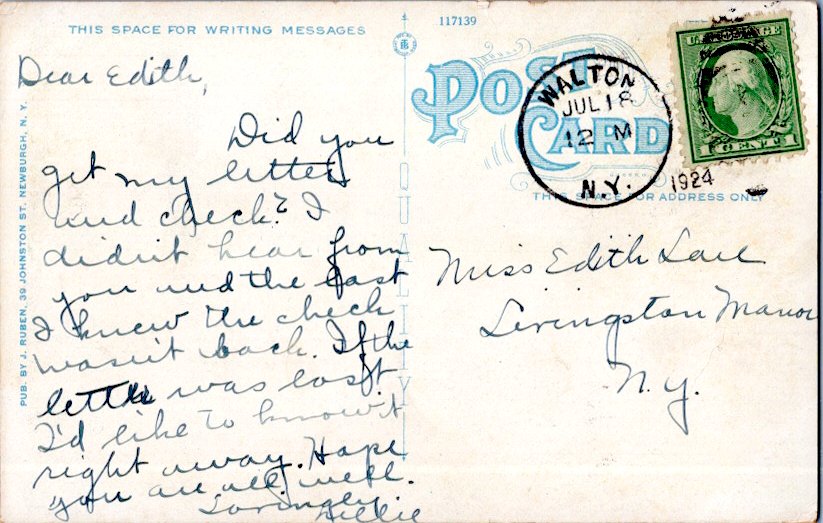 THIS SPACE FOR WRITING MESSAGES
Dear Edith,
Did you
get my letter
and check? I
didn't hear from
you and the last
I knew the check
wasn't back. If the
letter was lost
I'd like to know it
right away. Hope
you are all well.
Lovingly
PUB. BY J. RUBEN, 39 JOHNSTON ST. NEWBURGH, N. Y.
QUALITY
117139
POST
CARD
WALTON
JUL 18
12 M
N.Y.
1924
U.S. POSTAGE
CENT 1
THIS SPACE FOR ADDRESS ONLY
Miss Edith
Livingston Manor
N.Y.